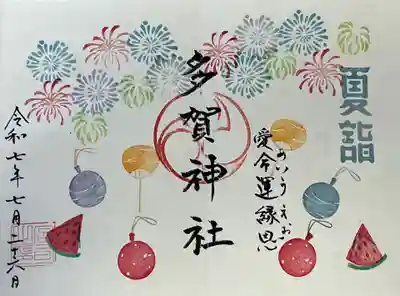 夏詣
愛命運縁恩
あいうえお
多賀神社
令和七年 七月二十六日